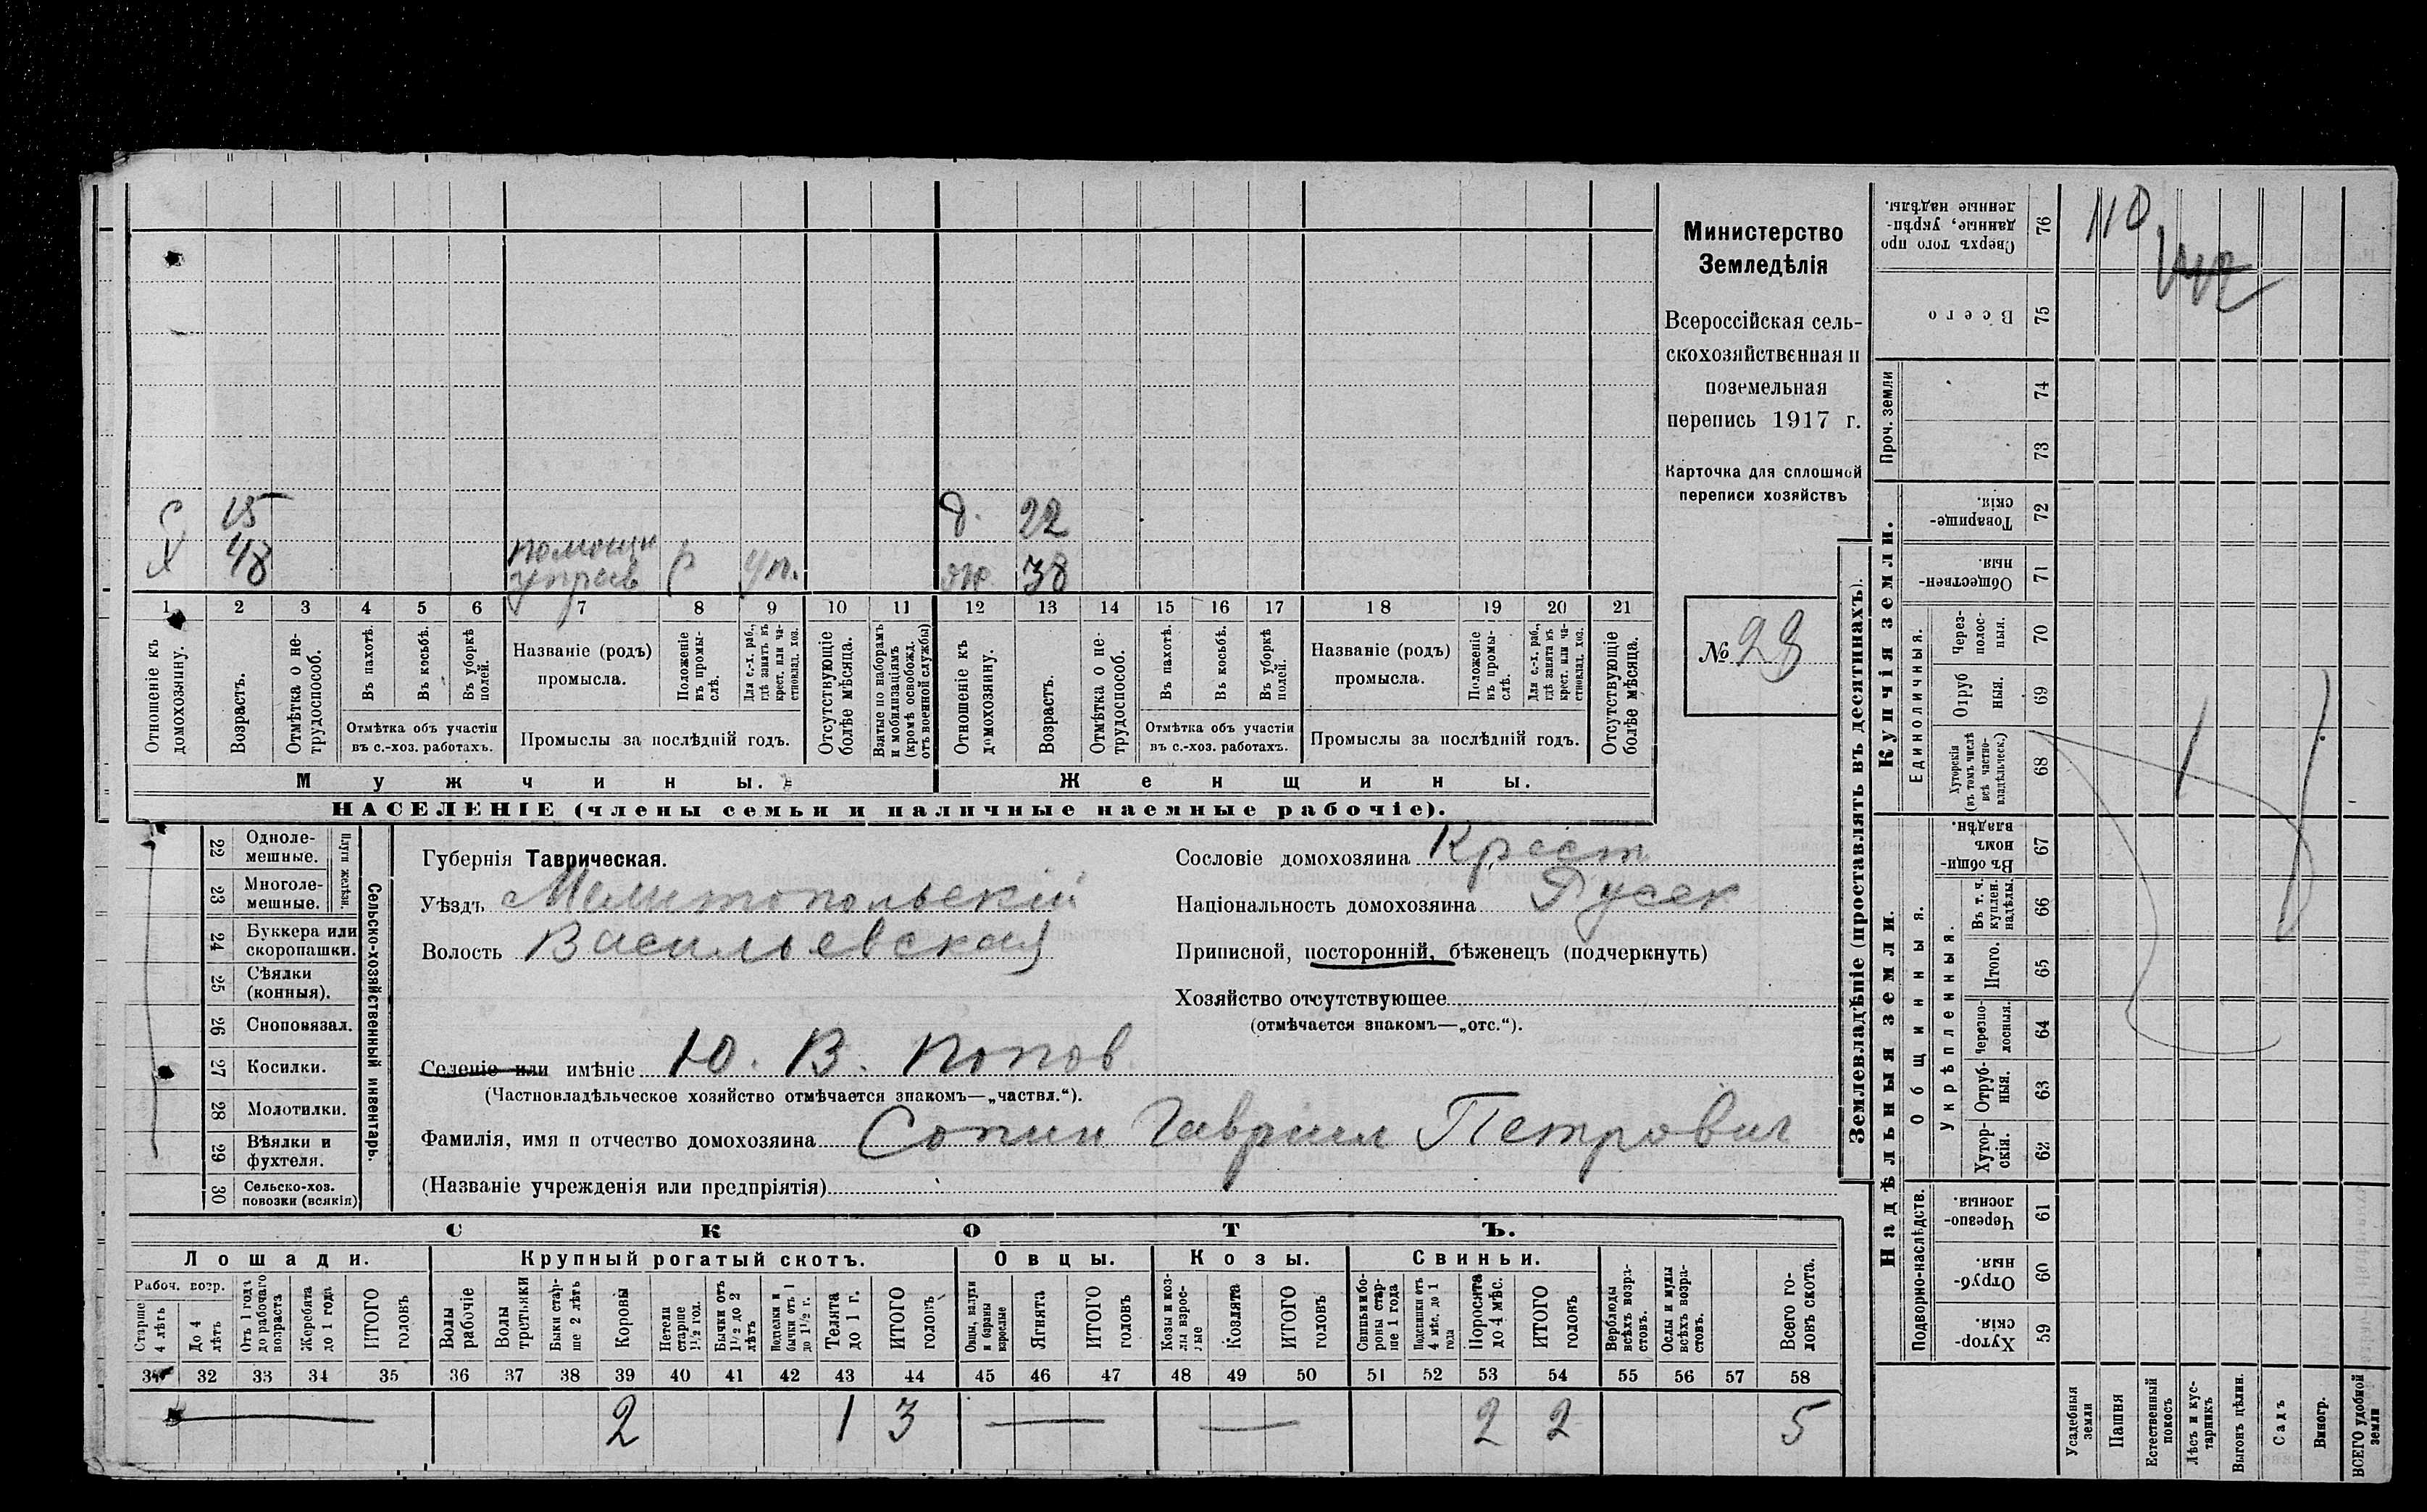 с 15 д. 22
х 48 помощн р уп. ж 38
управ
1 2 3 4 5 6 7 8 9 10 11 12 13 14 15 16 17 18 19 20 21
Отношеніе къ домохозяину.
Возрастъ.
Отмѣтка о не-трудоспособ.
Въ пахотѣ.
Въ косьбѣ.
Въ уборкѣ полей.
Отмѣтка объ участіи
въ с.-хоз. работахъ.
Названіе (родъ)
промысла.
Положеніе въ промы-слѣ.
Для с.-х. раб., гдѣ занятъ въ крест. или ча-стновлад. хоз.
Промыслы за послѣдній годъ.
Отсутствующіе болѣе мѣсяца.
Взятые по наборамъ и мобилизаціямъ (кромѣ освобожд. отъ военной службы)
Отношеніе къ домохозяину.
Возрастъ.
Отмѣтка о не-трудоспособ.
Въ пахотѣ.
Въ косьбѣ.
Въ уборкѣ полей.
Отмѣтка объ участіи
въ с.-хоз. работахъ.
Названіе (родъ)
промысла.
Положеніе въ промы-слѣ.
Для с.-х. раб., гдѣ занята въ крест. или ча-стновлад. хоз.
Промыслы за послѣдній годъ.
Отсутствующіе болѣе мѣсяца.
Мужчины.
Женщины.
НАСЕЛЕНІЕ (члены семьи и наличные наемные рабочіе).
Министерство
Земледѣлія
Всероссійская сель-
скохозяйственная и
поземельная
перепись 1917 г.
Карточка для сплошной
переписи хозяйствъ
№ 23
22 Одноле-мешные.
23 Многоле-мешные.
Плуги желѣзн.
24 Буккера или скоропашки.
25 Сѣялки (конныя).
26 Сноповязал.
27 Косилки.
28 Молотилки.
29 Вѣялки и фухтеля.
30 Сельско-хоз. повозки (всякія)
Сельско-хозяйственный инвентарь.
Губернія Таврическая.
Уѣздъ Мелитопольскій
Волость Васильевская
Сословіе домохозяина Крест
Національность домохозяина Русск
Приписной, посторонній, бѣженецъ (подчеркнуть)
Хозяйство отсутствующее
(отмѣчается знакомъ—„отс.“).
Селеніе или имѣніе Ю. В. Попов
(Частновладѣльческое хозяйство отмѣчается знакомъ—„частвл.“).
Фамилія, имя и отчество домохозяина Сопин Гавриил Петрович
(Названіе учрежденія или предпріятія)
СКОТЪ.
Лошади. Крупный рогатый скотъ. Овцы. Козы. Свиньи.
Рабоч. возр.
Старше 4 лѣтъ
До 4 лѣтъ
Отъ 1 года до рабочаго возраста
Жеребята до 1 года
ИТОГО головъ
Волы рабочіе
Волы третьяки
Быки стар-ше 2 лѣтъ
Коровы
Нетели старше 1½ год.
Бычки отъ 1½ до 2 лѣтъ
Подтелки и бычки отъ 1 до 1½ г.
Телята до 1 г.
ИТОГО головъ
Овцы, валухи и бараны взрослые
Ягнята
ИТОГО головъ
Козы и коз-лы взрос-лые
Козлята
ИТОГО головъ
Свиньи и бо-роны стар-ше 1 года
Подсвинки отъ 4 мѣс. до 1 года
Поросята до 4 мѣс.
ИТОГО головъ
Верблюды всѣхъ возра-стовъ.
Ослы и мулы всѣхъ возра-стовъ.
Всего го-ловъ скота.
31 32 33 34 35 36 37 38 39 40 41 42 43 44 45 46 47 48 49 50 51 52 53 54 55 56 57 58
2 1 3 2 2 5
Землевладѣніе (проставлять въ десятинахъ).
Купчія земли.
Надѣльныя земли.
Сверхъ того про данные, укрѣп-ленные надѣлы. 76
Всего 75
Проч. земли 74
73
Товарище-скія. 72
Обществен-ныя. 71
Единоличныя.
Через-полос-ныя. 70
Отруб ныя. 69
Хуторскія (въ томъ числѣ всѣ частно-владѣльческ.) 68
Въ общин-номъ владѣн. 67
Общинныя.
Укрѣпленныя.
Въ т. ч. куплен. надѣлы. 66
Итого. 65
Черезпо-лосныя. 64
Отруб-ныя. 63
Хутор-скія. 62
Подворно-наслѣдств.
Черезпо-лосныя. 61
Отруб-ныя. 60
Хутор-скія. 59
Усадебныя земли
Пашня
Естественный покосъ
Лѣсъ и кус-тарникъ
Выгонъ цѣлин.
Садъ
Виногр.
ВСЕГО удобной земли